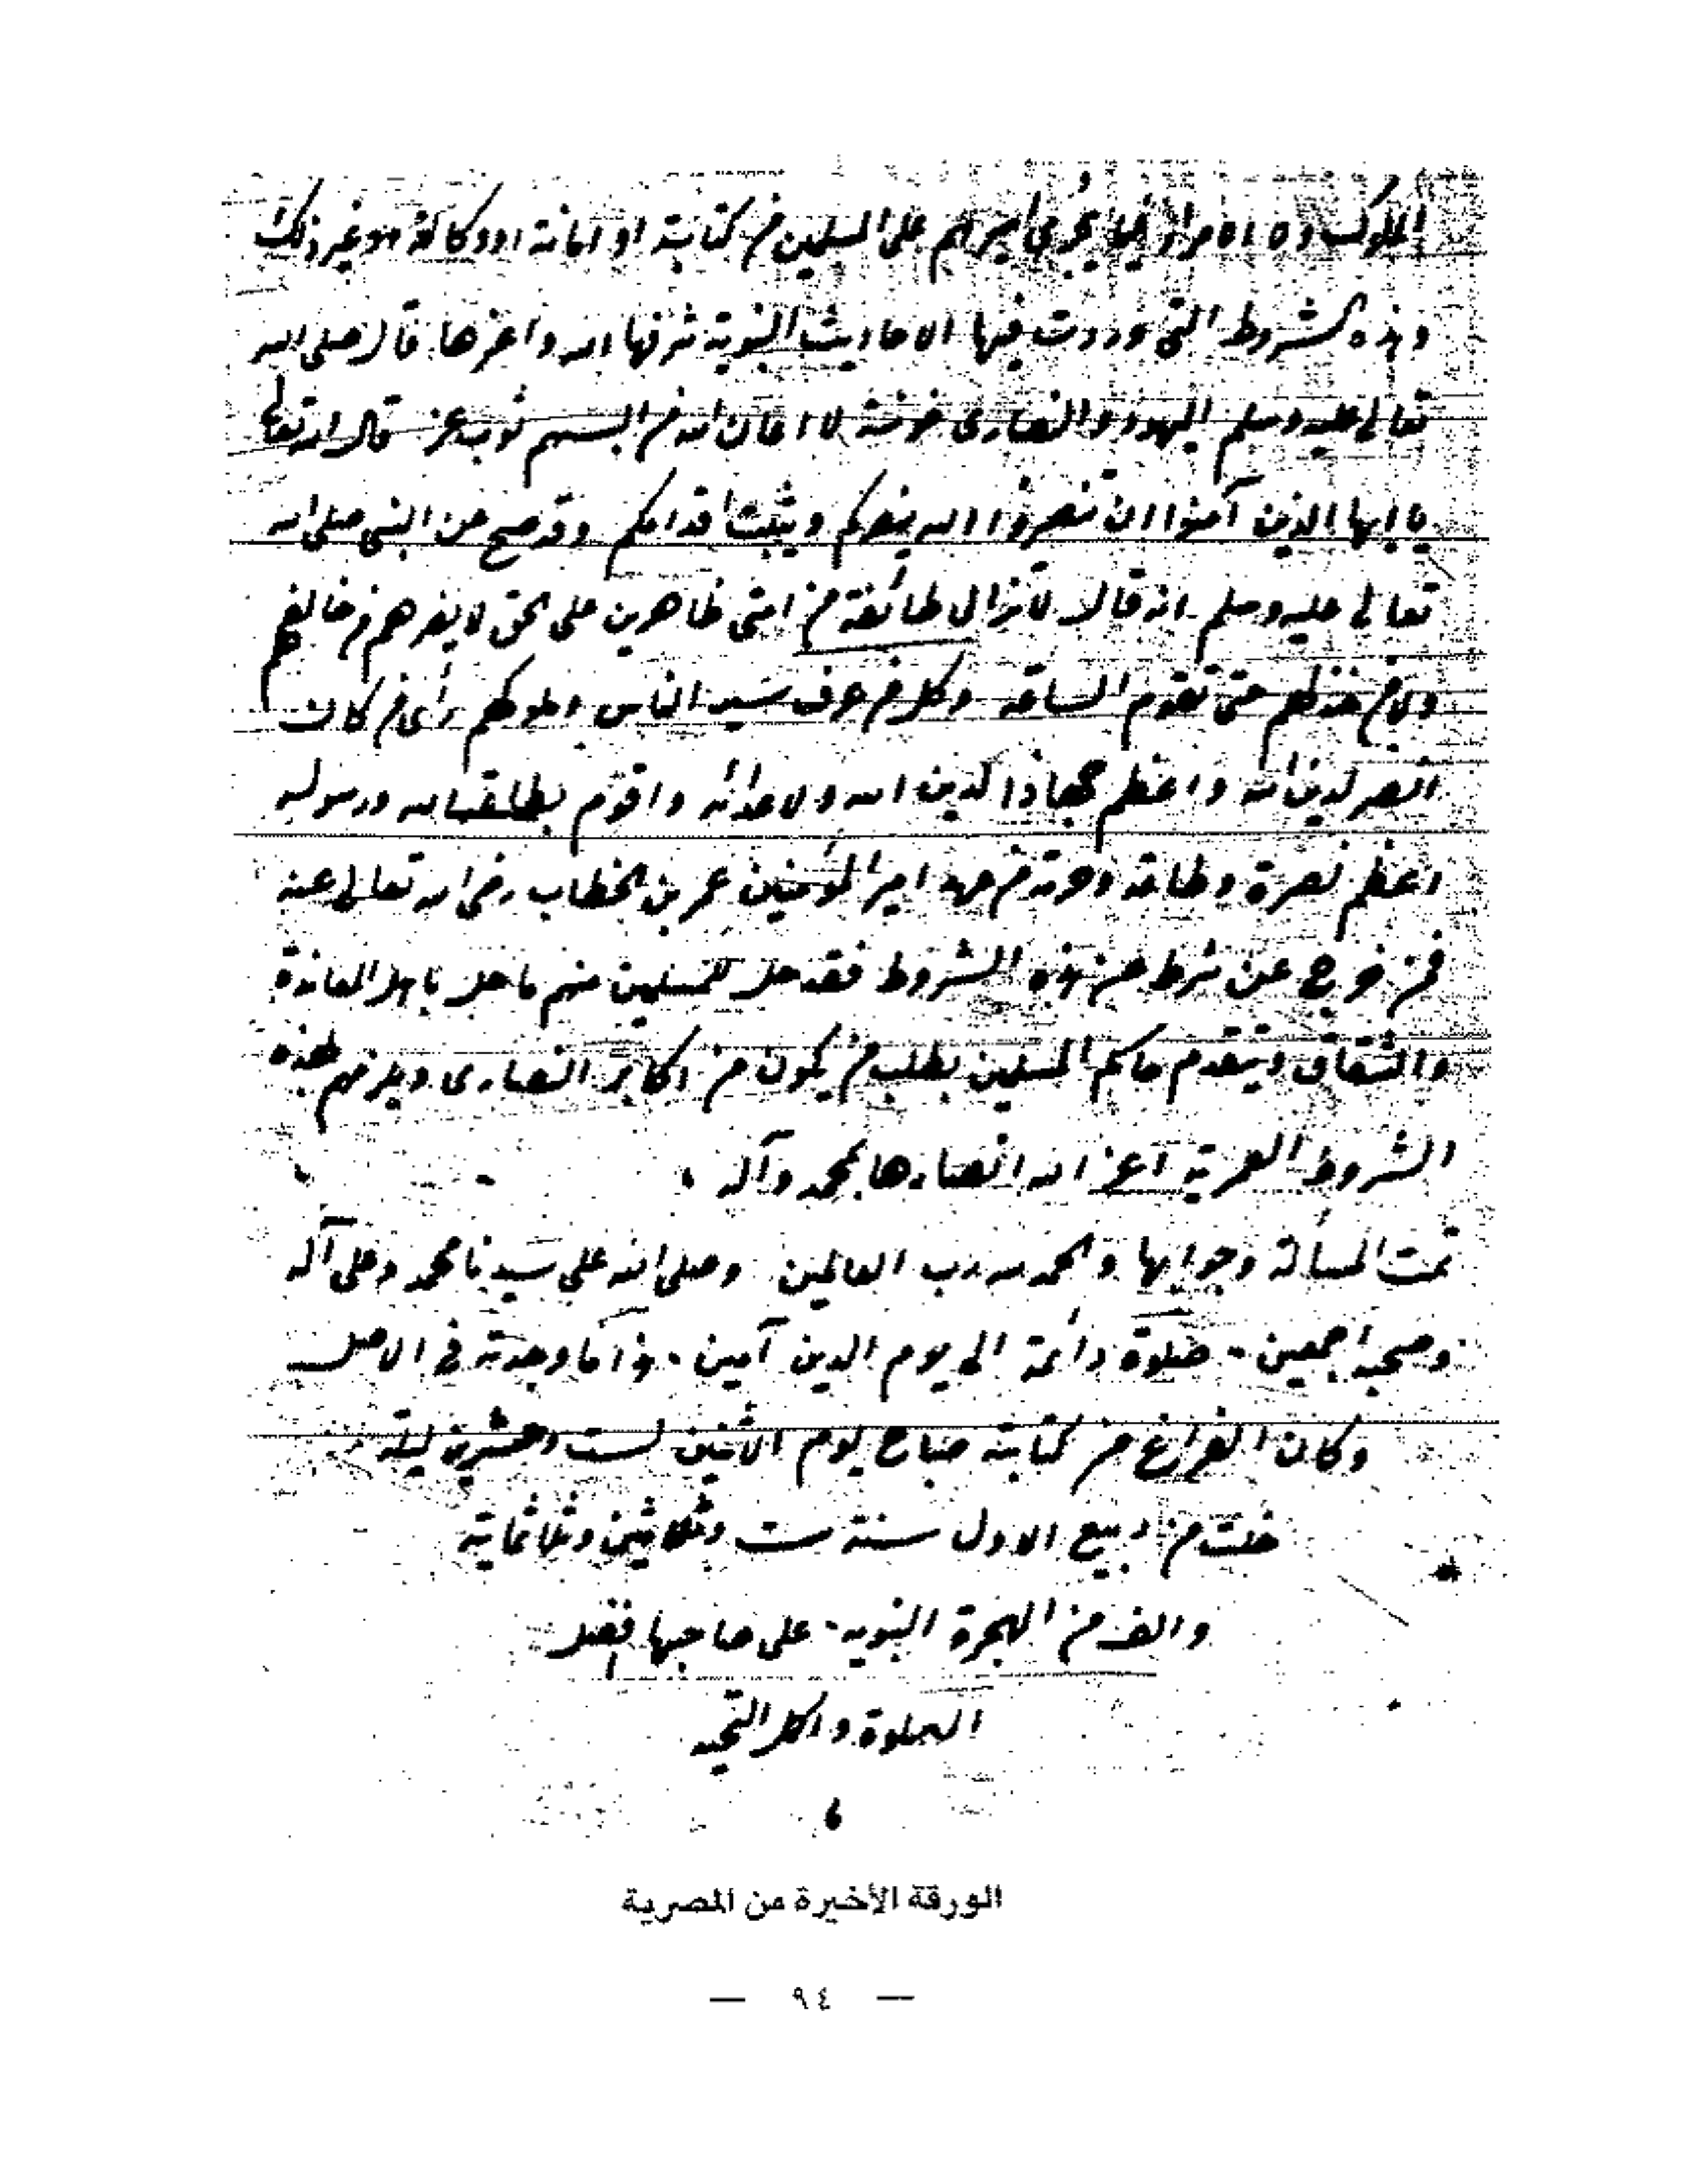 الملوك ولا الامراء فيما يجرى امرهم على المسلمين من كتابة او امانة او وكالة او غير ذلك
وهذه الشروط التى وردت فيها الاحاديث النبوية شرفها الله واعزها قال صلى الله
تعالى عليه وسلم اليهود والنصارى خونة لا اعان الله من البسهم ثوب عز قال الله تعالى
يا ايها الذين آمنوا ان تنصروا الله ينصركم ويثبت اقدامكم وقد صح عن النبى صلى الله
تعالى عليه وسلم انه قال لا تزال طائفة من امتى ظاهرين على الحق لا يضرهم من خالفهم
ولا من خذلهم حتى تقوم الساعة وكل من عرف سير الناس وملوكهم رأى من كان
انصر لدين الله واعظم جهادا لدين الله ولاعدائه واقوم بطاعة الله ورسوله
اعظم نصرة وطاعة وحرمة من عهد امير المؤمنين عمر بن الخطاب رضى الله تعالى عنه
فمن خرج عن شرط من هذه الشروط فقد حل للمسلمين منهم ما حل باهل المعاندة
والشقاق ويتقدم حاكم المسلمين بطلب من يكون من اكابر النصارى ويلزمهم بهذه
الشروط العمرية اعز الله انصارها بمحمد وآله .
تمت المسألة وجوابها والحمد لله رب العالمين وصلى الله على سيدنا محمد وعلى آله
وصحبه اجمعين - صلوة دائمة الى يوم الدين آمين . هذا ما وجدته فى الاصل
وكان الفراغ من كتابته صباح يوم الاثنين لست وعشرين ليلة
خلت من ربيع الاول سنة ست وثلاثين وثلاثماية
والف من الهجرة النبوية - على صاحبها افضل
الصلوة واكمل التحيه
الورقة الأخيرة من المصرية
— ٩٤ —